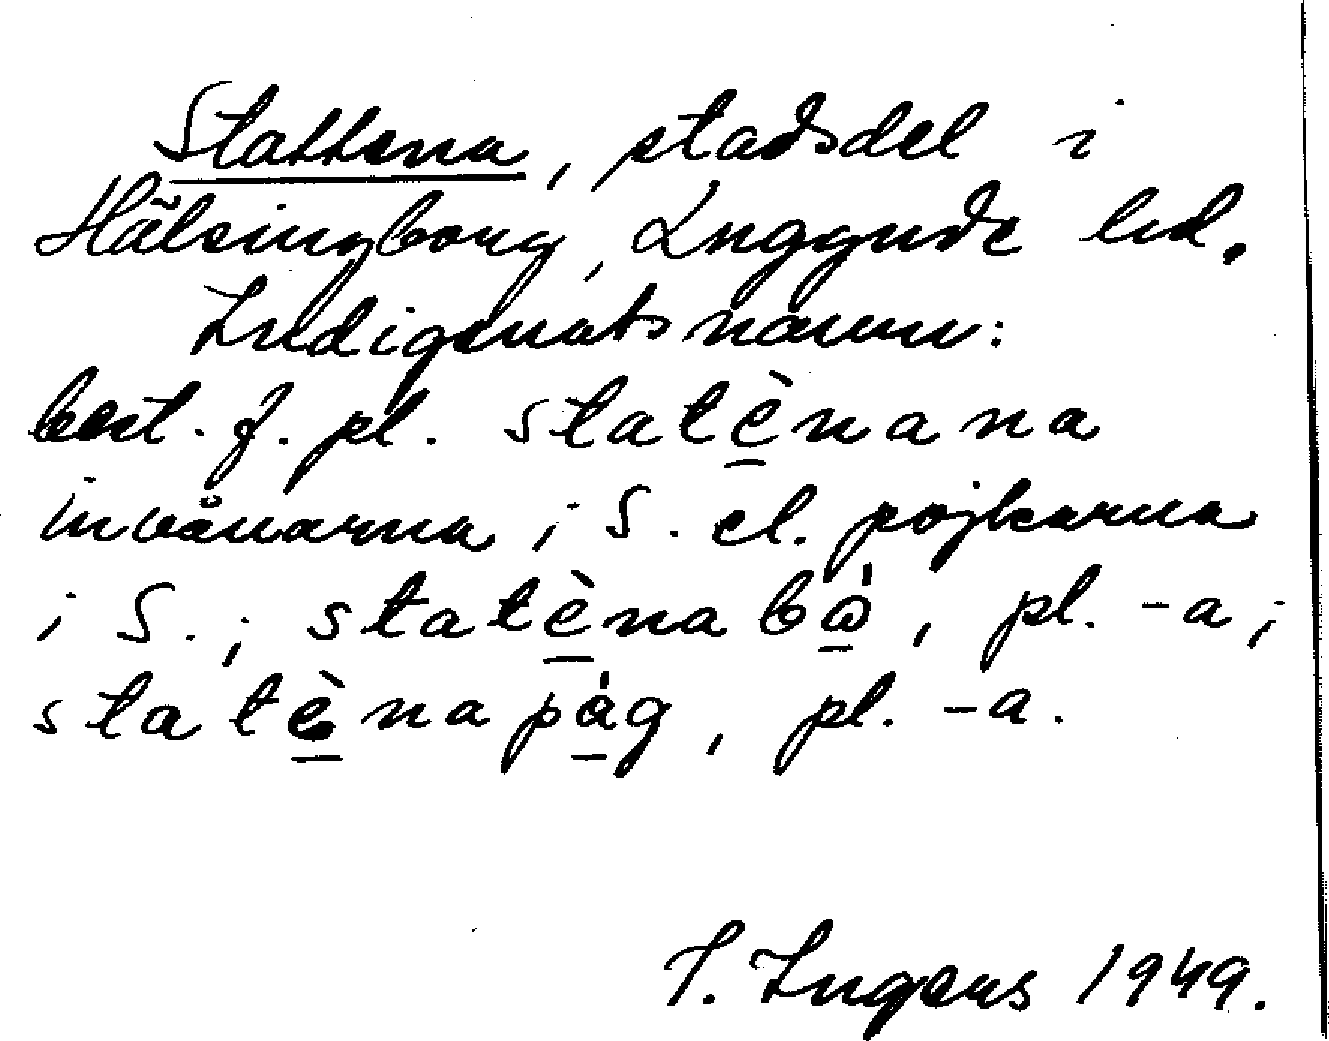 Stattena, stadsdel i
Hälsingborg, Luggude hd.
Indigenatsnamn:
best. f. pl. statè̱nana
invånarna i S. el. pojkarna
i S.; statè̱nabὼ̱, pl. -a;
statè̱napà̱g, pl. -a.
I. Ingers 1949.